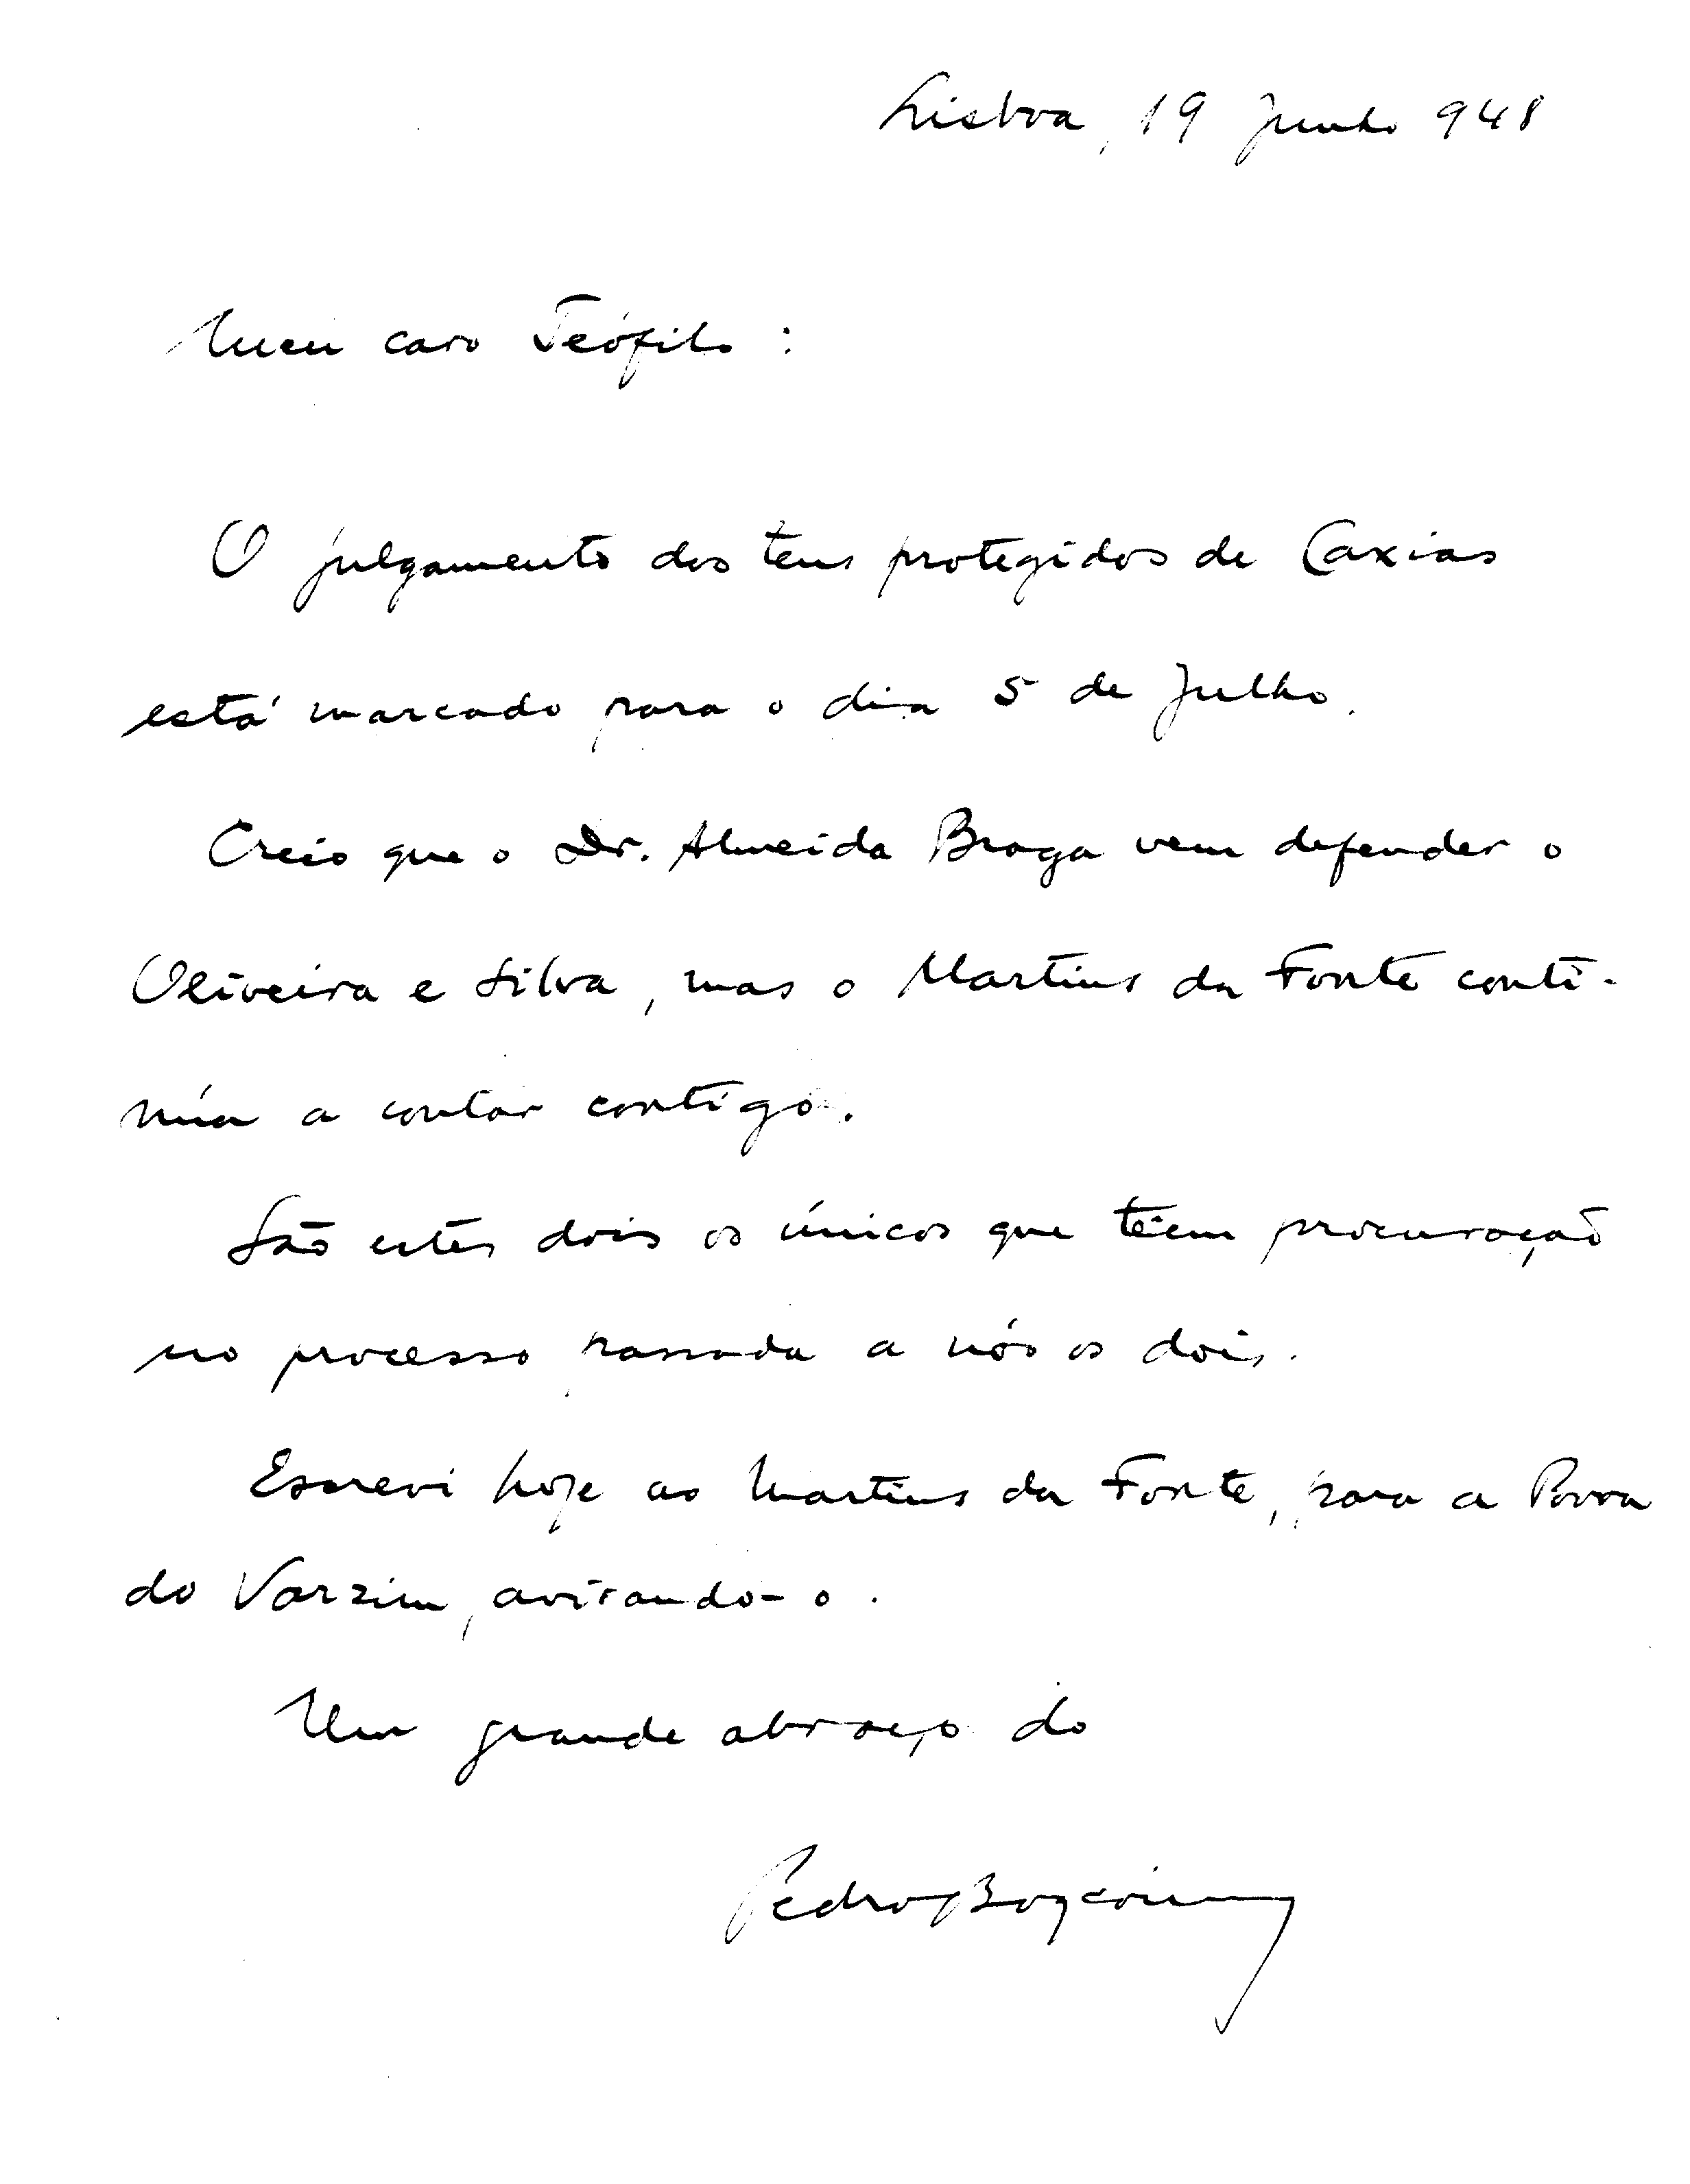 Lisboa, 19 Junho 948
Meu caro Teófilo :
O julgamento dos teus protegidos de Caxias
está marcado para o dia 5 de Julho.
Creio que o Dr. Almeida Braga vem defender o
Oliveira e Silva, mas o Martins da Fonte conti-
núa a contar contigo.
São estes dois os únicos que têem procuração
no processo passada a nós os dois.
Escrevi hoje ao Martins da Fonte, para a Povoa
do Varzim, avisando-o.
Um grande abraço do
Pedro